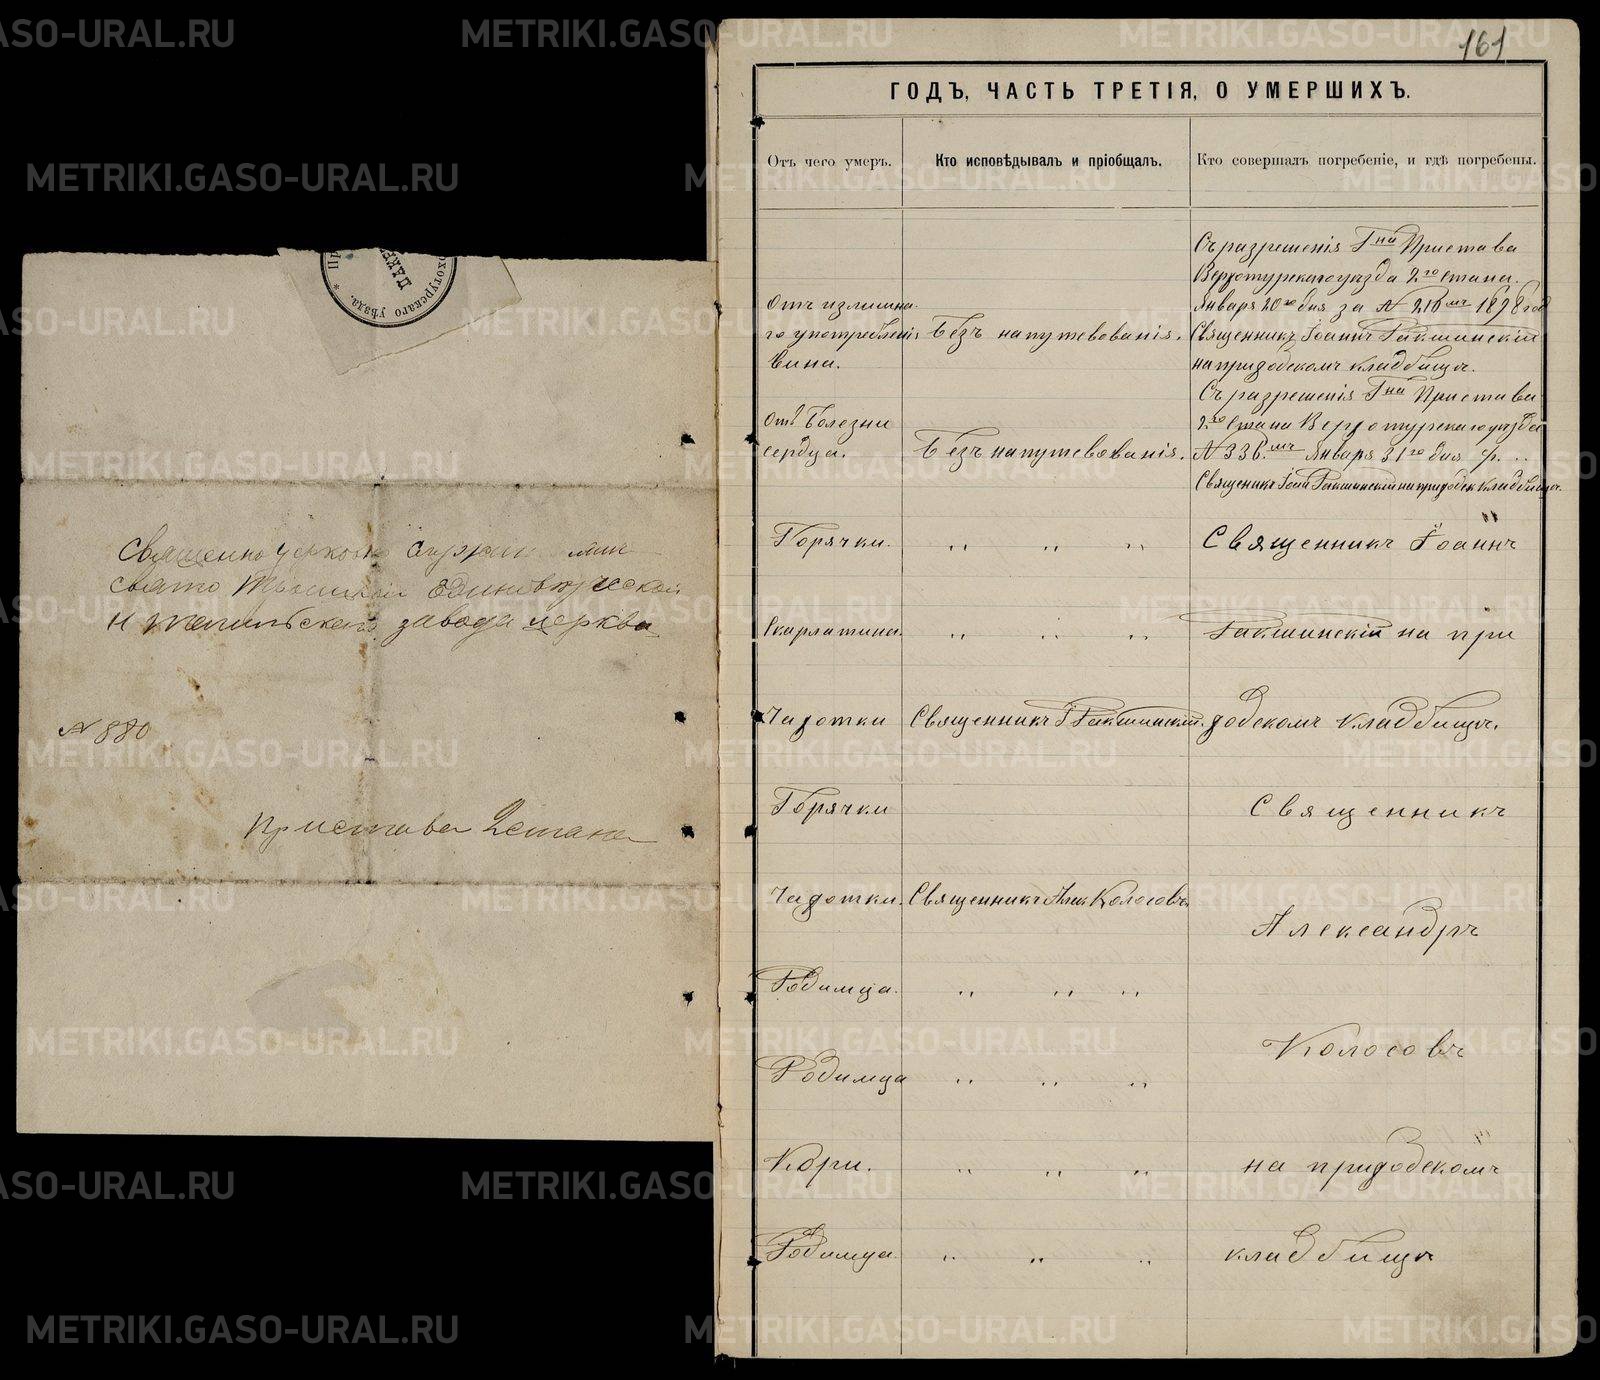 161
ГОДЪ, ЧАСТЬ ТРЕТІЯ, О УМЕРШИХЪ.
Отъ чего умеръ.
Кто исповѣдывалъ и пріобщалъ.
Кто совершалъ погребеніе, и гдѣ погребены.
Отъ излишня-
го употребленія
вина.
Безъ напутевованія.
Съ разрешенія Гна Пристава
Верхотурскаго уѣзда 2го Стана.
Января 20го дня за № 210мъ 1878 год
Священникъ Іоаннъ Гакшинскій
на приходскомъ кладбищѣ.
отъ Болезни
сердца.
Безъ напутевованія.
Съ разрешенія Гна Пристава
2го Стана Верхотурскаго уѣзда
№ 336.мъ Января 31го дня
Священикъ Гакшинскій на приходск кладбищѣ.
Горячки. „ „ „ Священникъ Іоаннъ
Скарлатина. „ „ „ Гакшинскій на при
Чахотки Священникъ І Гакшинскій. ходскомъ кладбищѣ.
Горячки Священникъ
Чахотки. Священникъ Алек Колосовъ.
Александръ
Родимца. „ „ „
Колосовъ
Родимца „ „ „
Кори. „ „ „ на приходскомъ
Родимца. „ „ „ кладбищѣ
ПАКЕ
рхотурскаго уѣзда. *
Священно церковно
Свято Троицкой Единовѣрческой
Н Тагильскаго завода церква
№ 880
Пристава 2 стана
METRIKI.GASO-URAL.RU